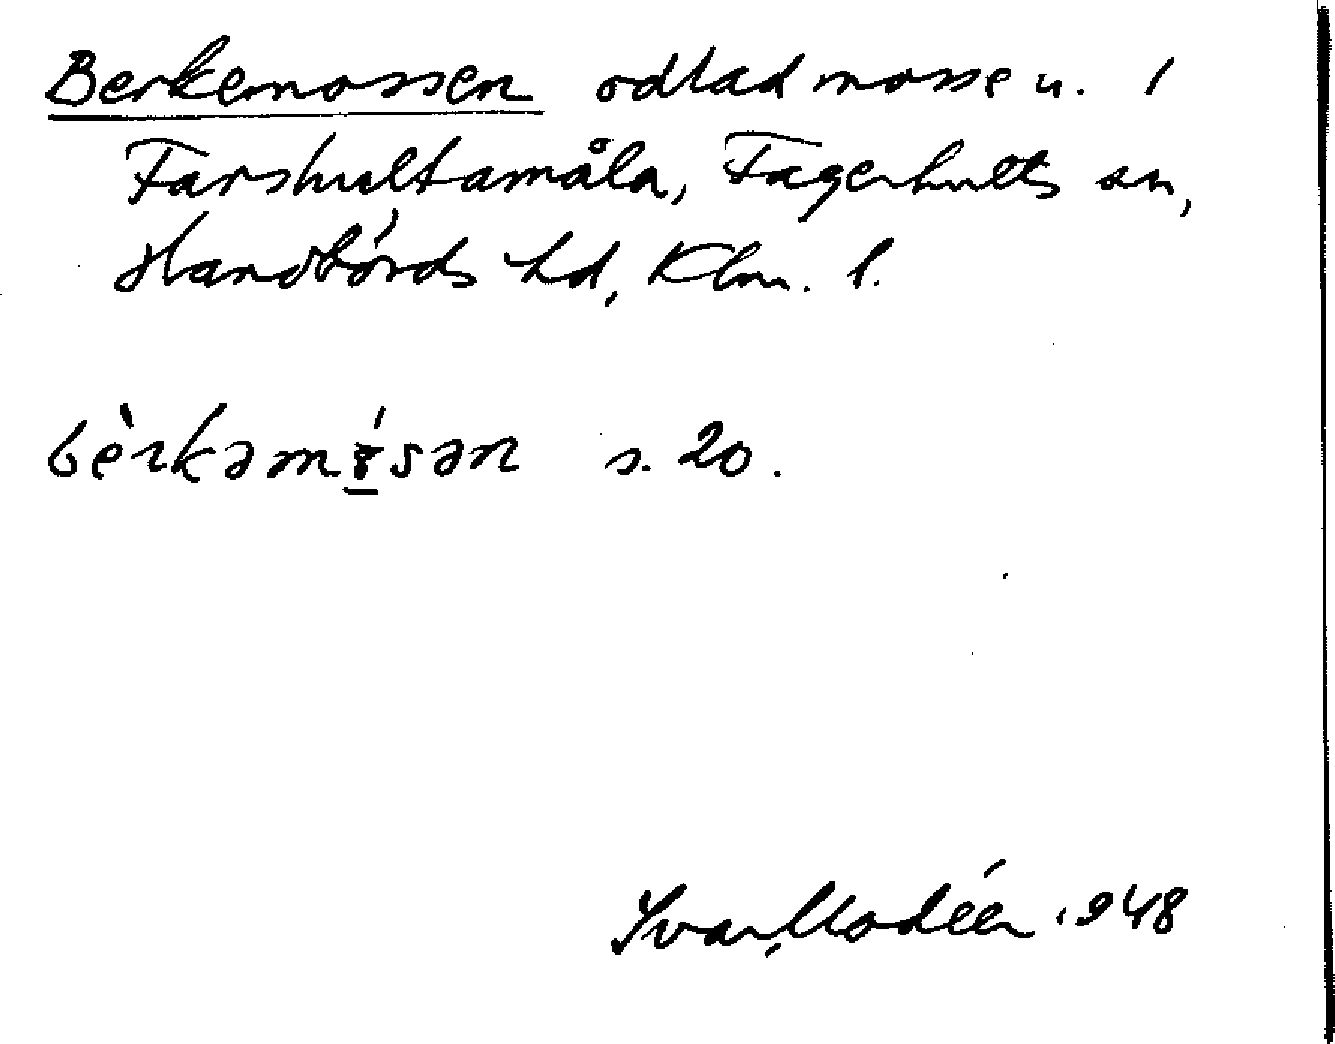 Berkemossen odlad mosse u. 1
Farshultamåla, Fagerhults sn,
Handbörds hd, Klm. l.
bèrkəm󠄀ósən s. 20.
Ivar Modéer 1948